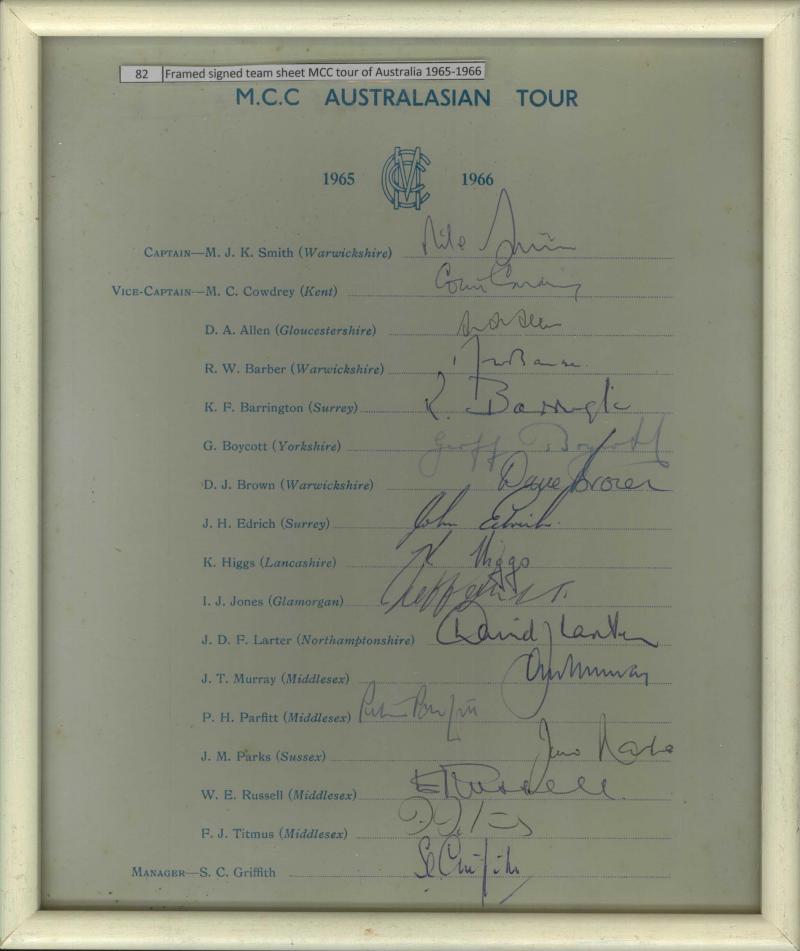 82 Framed signed team sheet MCC tour of Australia 1965-1966
M.C.C AUSTRALASIAN TOUR
1965 MCC 1966
CAPTAIN—M. J. K. Smith (Warwickshire) Mike Smith
VICE-CAPTAIN—M. C. Cowdrey (Kent) Colin Cowdrey
D. A. Allen (Gloucestershire)
R. W. Barber (Warwickshire)
K. F. Barrington (Surrey) K. Barrington
G. Boycott (Yorkshire) Geoff Boycott
D. J. Brown (Warwickshire) Dave Brown
J. H. Edrich (Surrey) John Edrich
K. Higgs (Lancashire) K Higgs
I. J. Jones (Glamorgan)
J. D. F. Larter (Northamptonshire) David Larter
J. T. Murray (Middlesex) Murray
P. H. Parfitt (Middlesex) Peter Parfitt
J. M. Parks (Sussex) Jim Parks
W. E. Russell (Middlesex) E Russell
F. J. Titmus (Middlesex)
MANAGER—S. C. Griffith S C Griffith